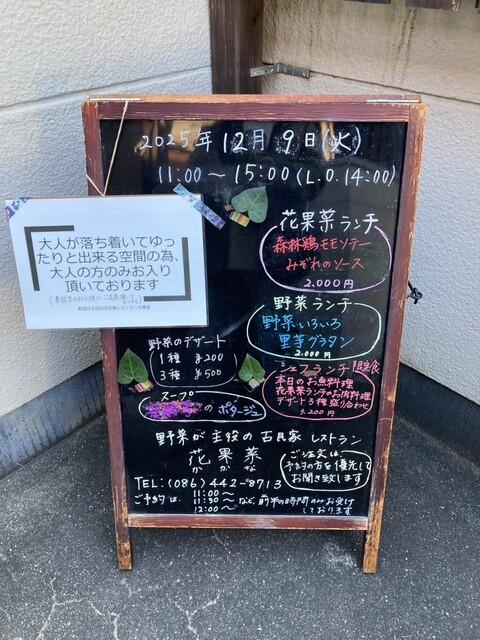 2025年12月9日(火)
11:00〜15:00(L.O.14:00)
大人が落ち着いてゆっ
たりと出来る空間の為、
大人の方のみお入り
頂いております
野菜が主役の古民家レストラン花果菜
花果菜ランチ
森林鶏モモソテー
みぞれのソース
2,000円
野菜ランチ
野菜いろいろ
里芋グラタン
2,000円
野菜のデザート
1種 ¥200
3種 ¥500
スープ
のポタージュ
シェフランチ 限定食
本日のお魚料理
花果菜ランチのお肉料理
デザート3種盛り合わせ
3,200円
野菜が主役の古民家レストラン
花果菜
かかな
ご注文は
予約の方を優先して
お聞き致します
TEL:(086)442-8713
ご予約は、
11:00〜
11:30〜
12:00〜
など、前半の時間のみお受け
しております